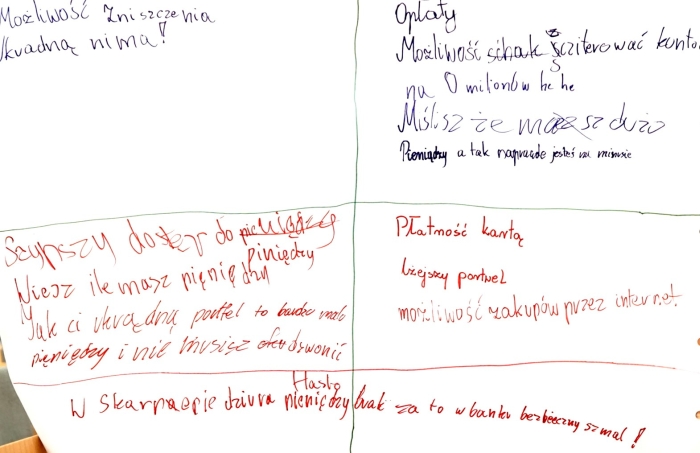 Możliwość Zniszczenia
Ukradną nima!
Opłaty
Możliwość schak
na 0 milionów he he
Miślisz że masz dużo
Pieniędzy a tak naprawdę jesteś na minusie
Szypszy dostęp do pieniędzy
Piniędzy
Wiesz ile masz pieniędzy
Jak ci ukradną portfel to bardzo mało
pieniędzy i nie musisz dzwonić
Płatność kartą
lżejszy portwel
możliwość zakupów przez internet
Hasło
W skarpaepie dziura pieniędzy brak za to w banku bezpieczny szmal!